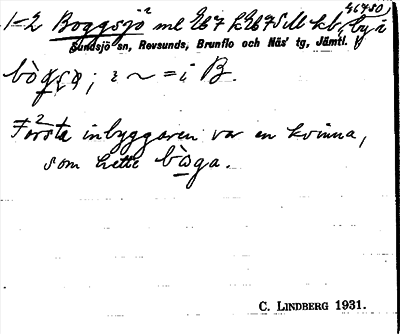 1-2 Boggsjö² ml 267 k 2675 M kb, by i
26750
Sundsjö sn, Revsunds, Brunflo och Näs' tg, Jämtl.
i ~ = i B.
2
Första inbyggaren var en kvinna,
som hette bòga.
C. LINDBERG 1931.